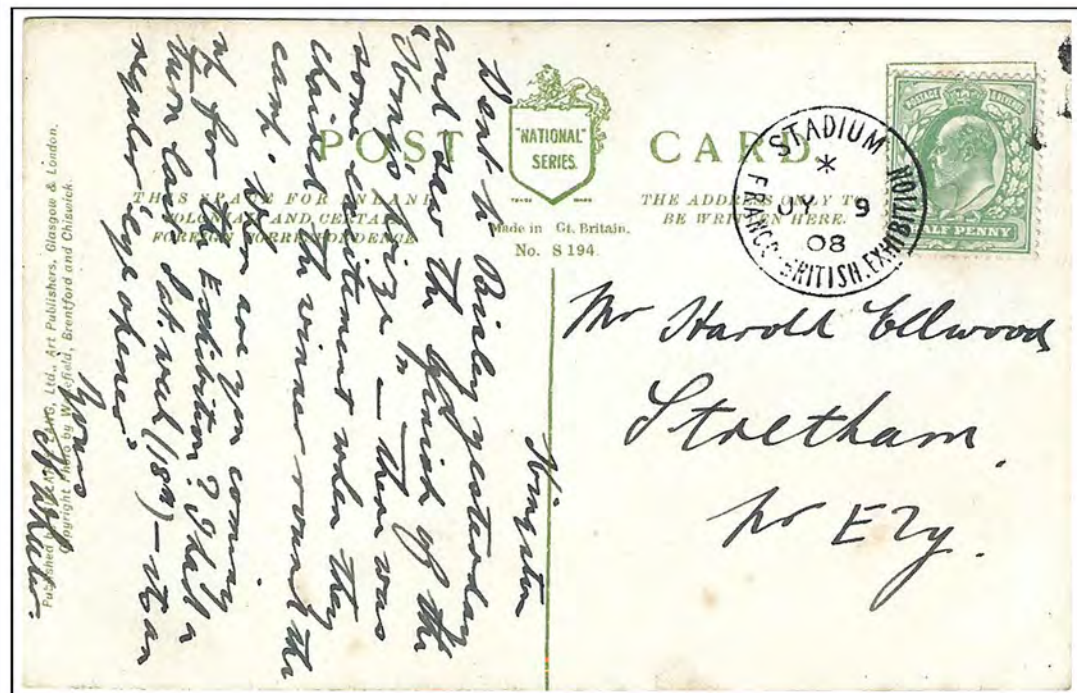 POST CARD
"NATIONAL"
SERIES.
TRADE MARK
THIS SPACE FOR INLAND
COLONIAL AND CERTAIN
FOREIGN CORRESPONDENCE
Made in Gt. Britain.
No. S 194.
THE ADDRESS ONLY TO
BE WRITTEN HERE.
STADIUM
*
JY 9
08
FRANCO-BRITISH.EXHIBITION
POSTAGE REVENUE
HALF PENNY
Mr Harold Ellwood
Stretham.
nr Ely.
Kingston
Went to Bisley yesterday
and saw the finish of the
King's Prize — there was
some excitement when they
chaired the winner round the
camp.
When are you coming
up for the Exhibition? I had a
turn last Sat. week (18th) — it
regular "eye opener"
Yours
Published by Ltd., Art Publishers, Glasgow & London.
Copyright Photo by Wakefield, Brentford and Chiswick.